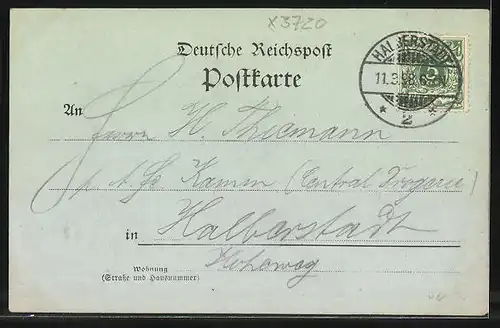 X3720
Deutsche Reichspost
Postkarte
HALBERSTADT
11.3.98.6-
* 2 *
An
Herrn H. Thiemann
Kamin (Central Drogerie)
in Halberstadt
Hoheweg
Wohnung
(Straße und Hausnummer)